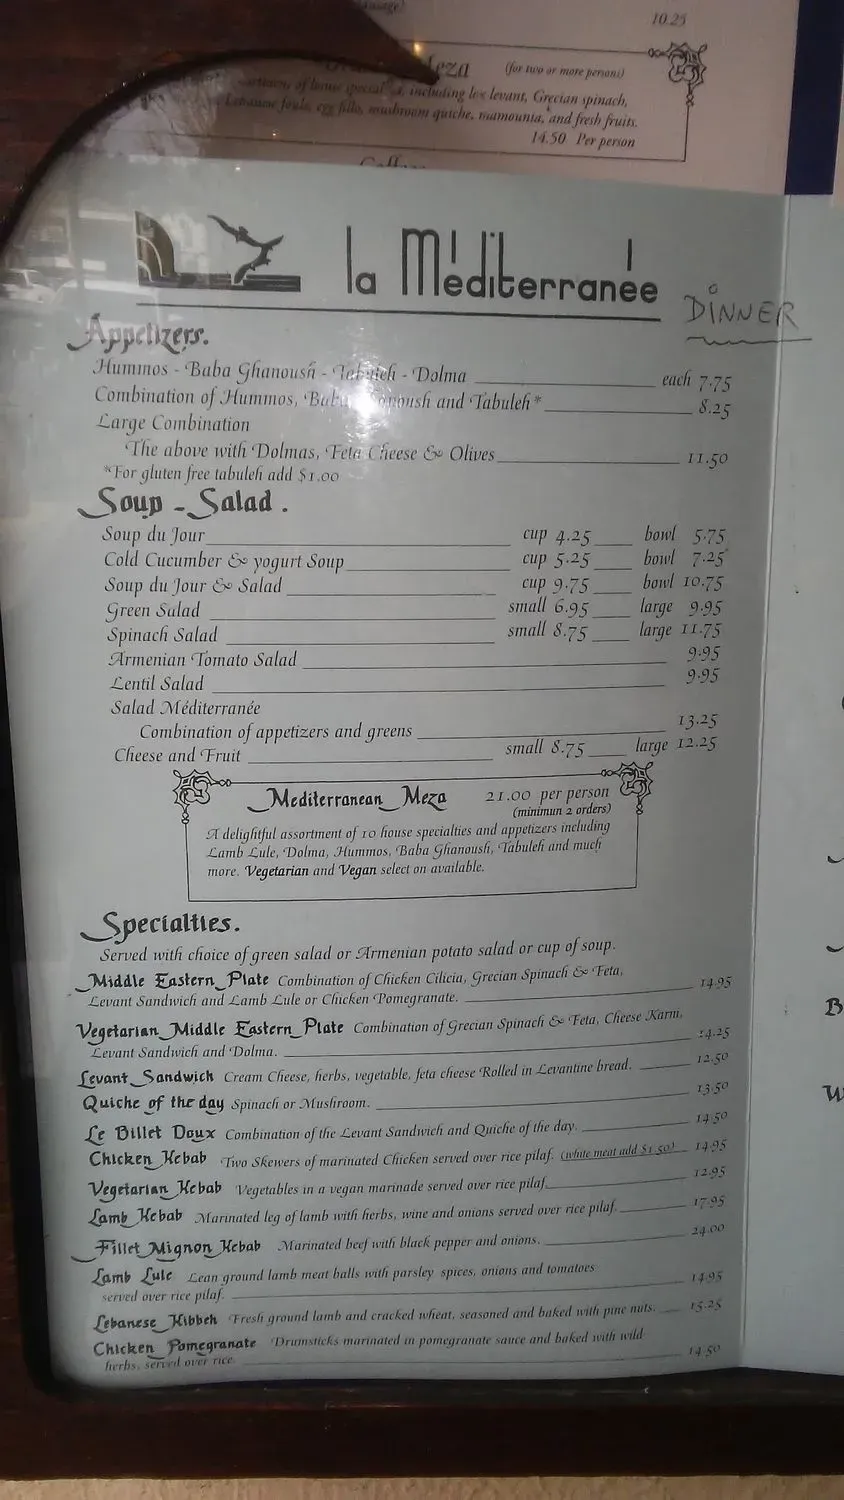 10.25
Meza (for two or more persons)
of house special including lex levant, Grecian spinach,
Lebanese foule, egg fillo, mushroom quiche, mamounia, and fresh fruits.
14.50 Per person
la Méditerranée
DINNER
Appetizers.
Hummos - Baba Ghanoush - Tabuleh - Dolma each 7.75
Combination of Hummos, Baba Ghanoush and Tabuleh* 8.25
Large Combination
The above with Dolmas, Feta Cheese & Olives 11.50
*For gluten free tabuleh add $1.00
Soup - Salad .
Soup du Jour cup 4.25 bowl 5.75
Cold Cucumber & yogurt Soup cup 5.25 bowl 7.25
Soup du Jour & Salad cup 9.75 bowl 10.75
Green Salad small 6.95 large 9.95
Spinach Salad small 8.75 large 11.75
Armenian Tomato Salad 9.95
Lentil Salad 9.95
Salad Méditerranée
Combination of appetizers and greens 13.25
Cheese and Fruit small 8.75 large 12.25
Mediterranean Meza 21.00 per person
(minimun 2 orders)
A delightful assortment of 10 house specialties and appetizers including
Lamb Lule, Dolma, Hummos, Baba Ghanoush, Tabuleh and much
more. Vegetarian and Vegan select on available.
Specialties.
Served with choice of green salad or Armenian potato salad or cup of soup.
Middle Eastern Plate Combination of Chicken Cilicia, Grecian Spinach & Feta,
Levant Sandwich and Lamb Lule or Chicken Pomegranate. 14.95
Vegetarian Middle Eastern Plate Combination of Grecian Spinach & Feta, Cheese Karni,
Levant Sandwich and Dolma. 14.25
Levant Sandwich Cream Cheese, herbs, vegetable, feta cheese Rolled in Levantine bread. 12.50
Quiche of the day Spinach or Mushroom. 13.50
Le Billet Doux Combination of the Levant Sandwich and Quiche of the day. 14.50
Chicken Kebab Two Skewers of marinated Chicken served over rice pilaf. (white meat add $1.50) 14.95
Vegetarian Kebab Vegetables in a vegan marinade served over rice pilaf. 12.95
Lamb Kebab Marinated leg of lamb with herbs, wine and onions served over rice pilaf. 17.95
Fillet Mignon Kebab Marinated beef with black pepper and onions. 24.00
Lamb Lule Lean ground lamb meat balls with parsley spices, onions and tomatoes
served over rice pilaf. 14.95
Lebanese Kibbeh Fresh ground lamb and cracked wheat, seasoned and baked with pine nuts. 15.25
Chicken Pomegranate Drumsticks marinated in pomegranate sauce and baked with wild
herbs, served over rice. 14.50